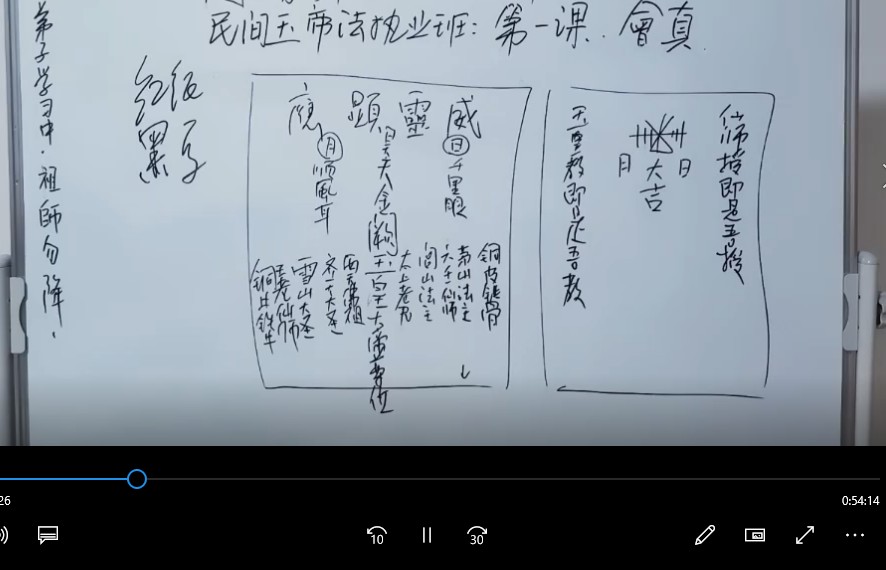 民间玉帝法执业班：第一课．會真
弟子学习中．祖師勿降．
红纸
黑字
威靈顯應
日千里眼
月順風耳
昊天金闕玉皇大帝尊位
銅皮鐵骨
茅山法主
六壬仙師
閭山法主
太上老君
西天佛祖
齐天大圣
雪山大圣
師指即是吾指
日
大吉
月
玉皇教即是吾教
26
0:54:14
10
30